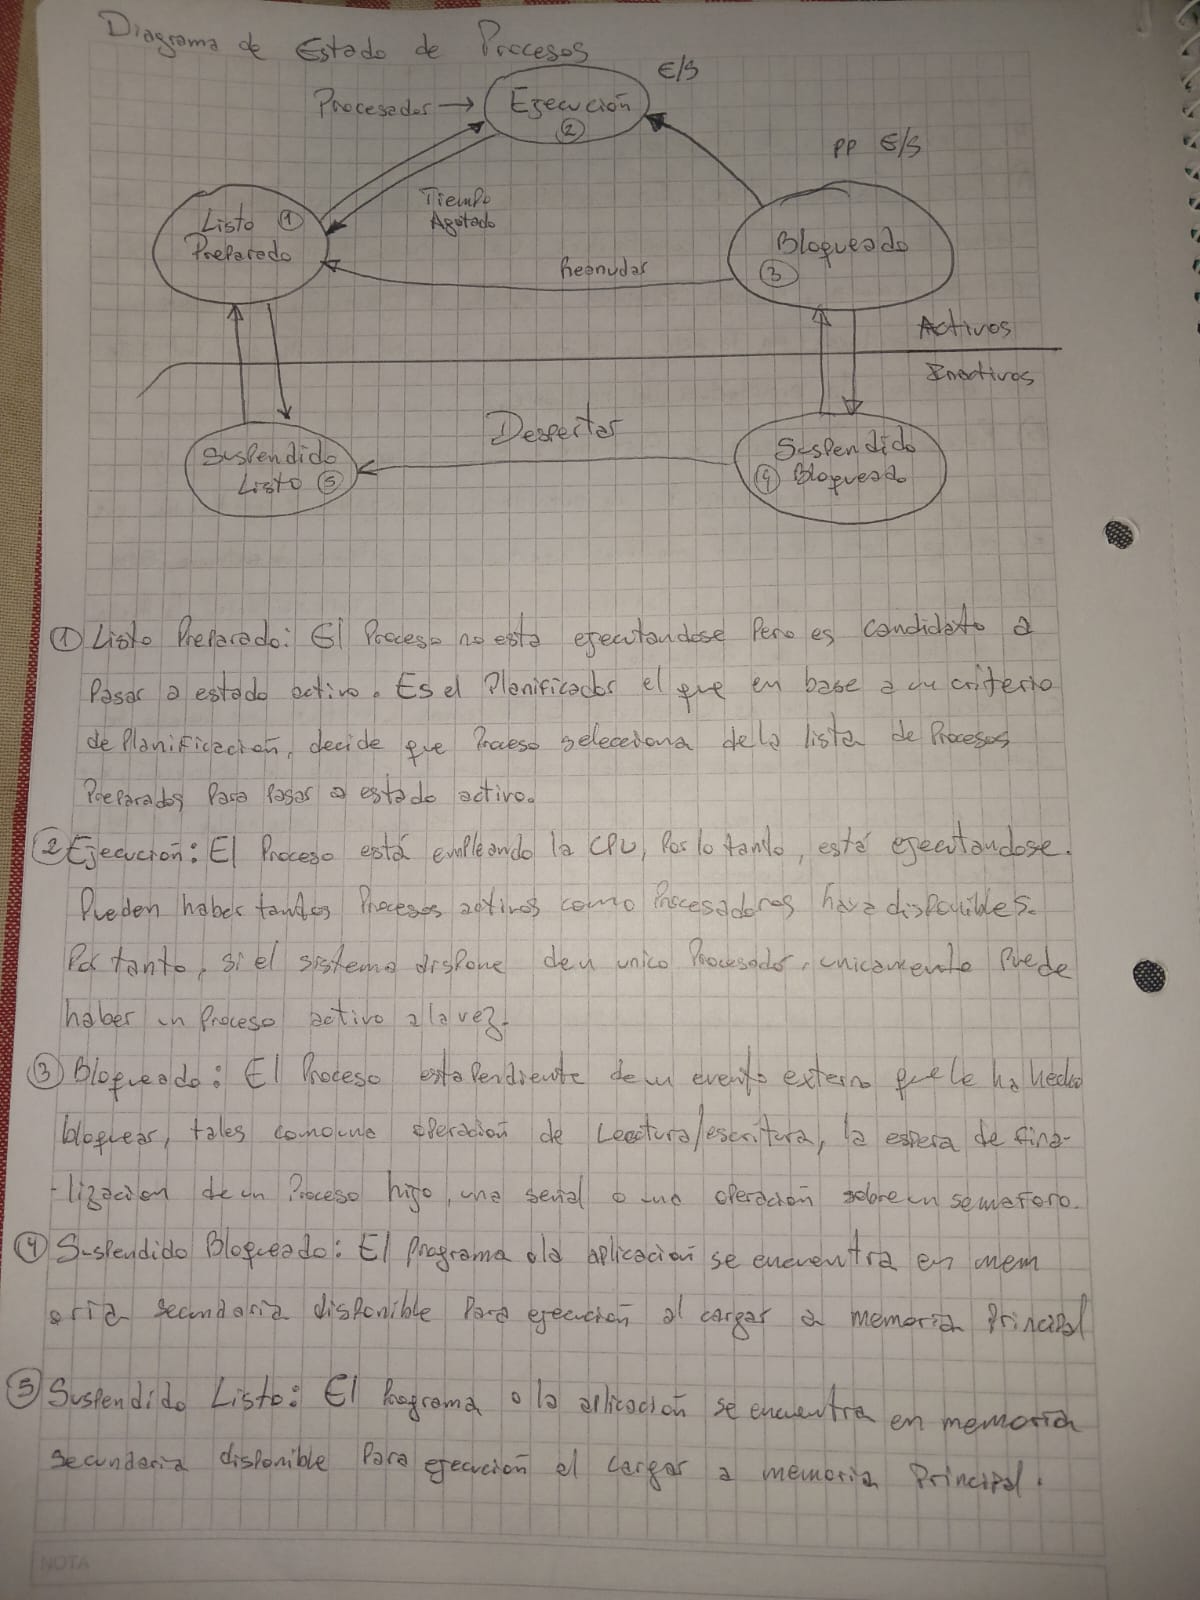 Diagrama de Estado de Procesos
E/S
Procesador → Ejecución
②
PP E/S
Tiempo
Agotado
Listo ①
Preparado
Bloqueado
③
Reanudar
Activos
Inactivos
Despertar
Suspendido
Listo ⑤
Suspendido
④ Bloqueado
① Listo Preparado: El Proceso no esta ejecutandose Pero es candidato a
Pasar a estado activo. Es el Planificador el que en base a un criterio
de Planificación, decide que Proceso selecciona de la lista de Procesos
Preparados Para Pasar a estado activo.
② Ejecución: El Proceso está empleando la CPU, Por lo tanto, está ejecutandose.
Pueden haber tantos Procesos activos como Procesadores haya disponibles.
Por tanto, si el sistema dispone de un unico Procesador, unicamente Puede
haber un Proceso activo a la vez.
③ Bloqueado: El Proceso esta Pendiente de un evento externo que le ha hecho
bloquear, tales como una operación de Lectura/escritura, la espera de fina-
-lización de un Proceso hijo, una señal o una operación sobre un semaforo.
④ Suspendido Bloqueado: El Programa o la aplicación se encuentra en mem
oria secundaria disponible Para ejecución al cargar a memoria Principal
⑤ Suspendido Listo: El Programa o la aplicación se encuentra en memoria
secundaria disponible Para ejecución al cargar a memoria Principal.
NOTA